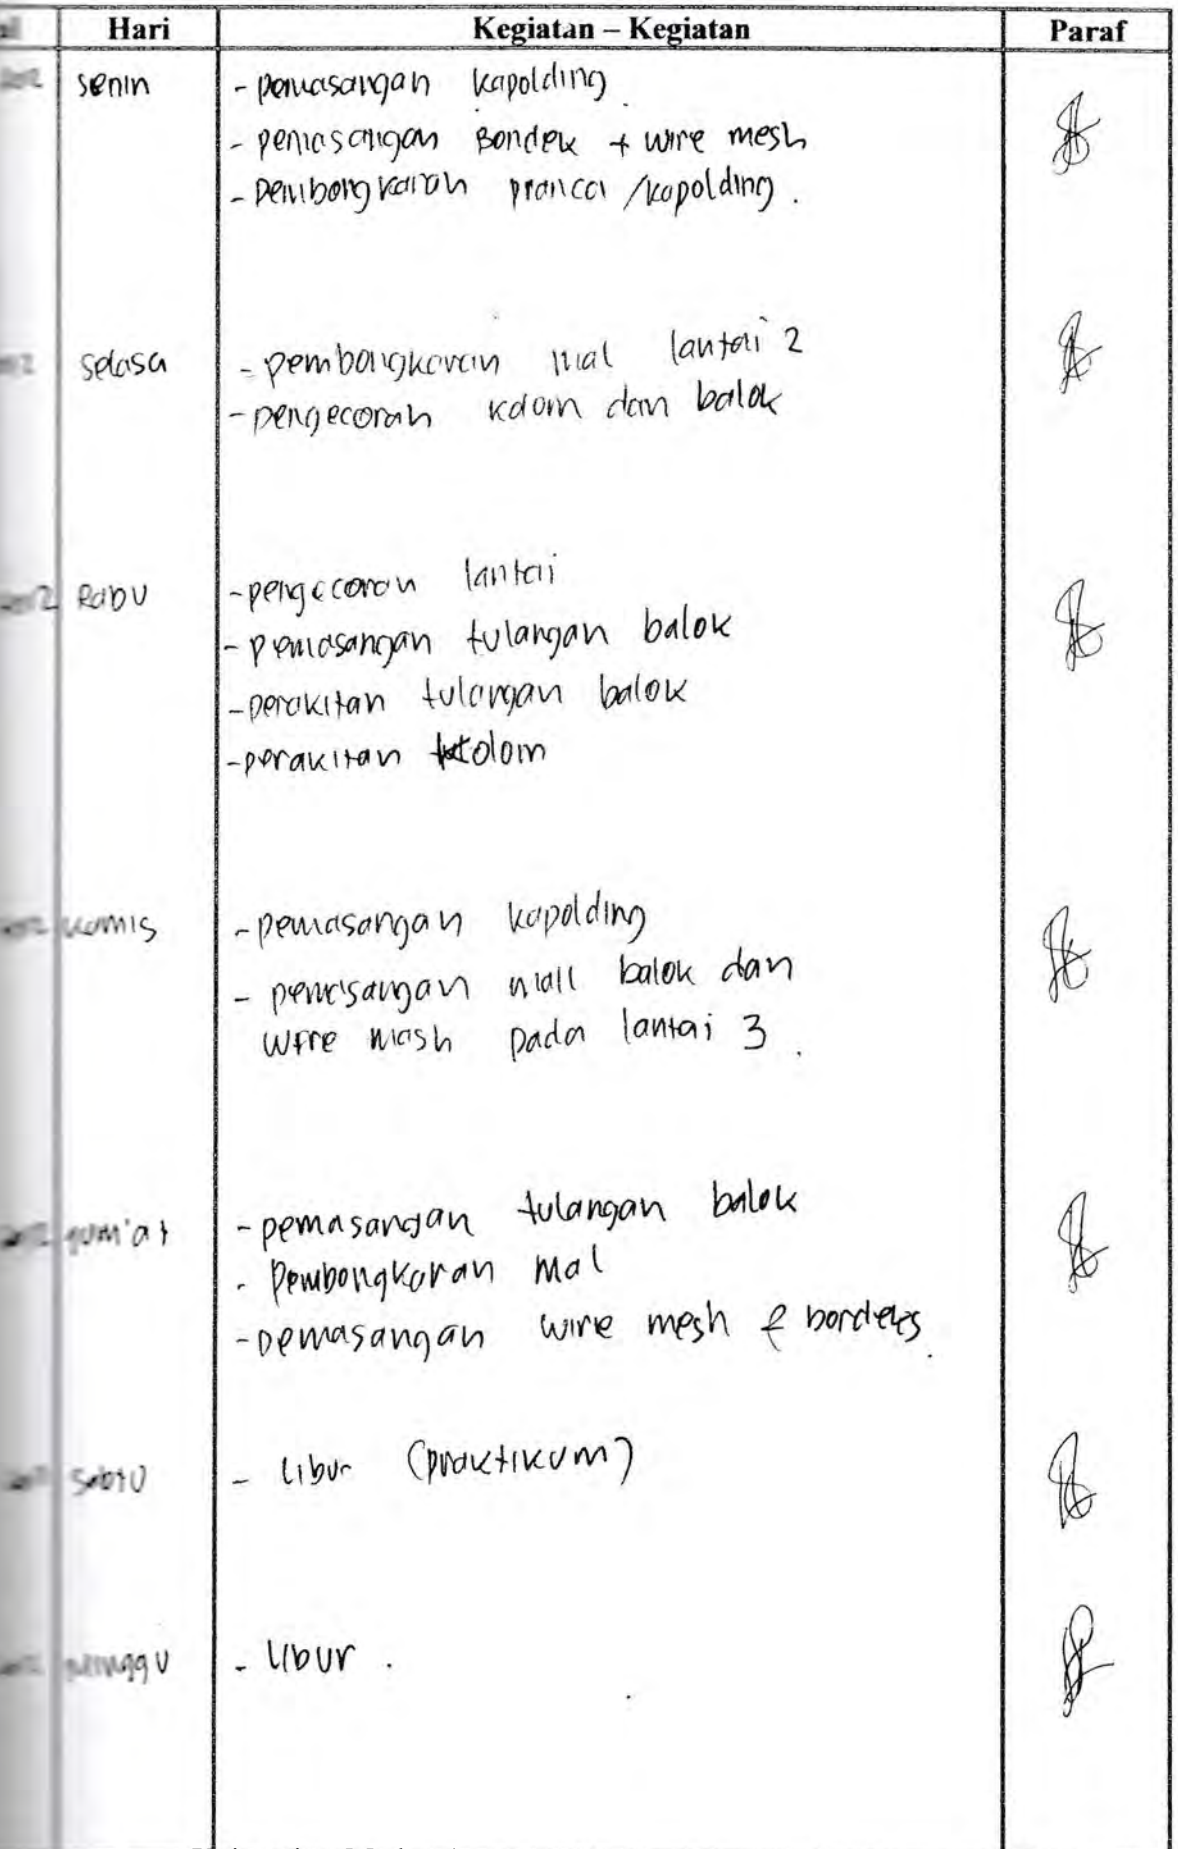 Hari Kegiatan – Kegiatan Paraf
senin - pemasangan kapolding
- pemasangan Bondek + wire mesh
- pembongkaran pranca /kapolding.
selasa - pembongkaran mal lantai 2
- pengecoran kolom dan balok
2 Rabu - pengecoran lantai
- pemasangan tulangan balok
- perakitan tulangan balok
- perakitan kolom
kamis - pemasangan kapolding
- pemasangan mall balok dan
wire mash pada lantai 3.
jum'at - pemasangan tulangan balok
- Pembongkaran mal
- pemasangan wire mesh &
sabtu - libur (praktikum)
minggu - libur.